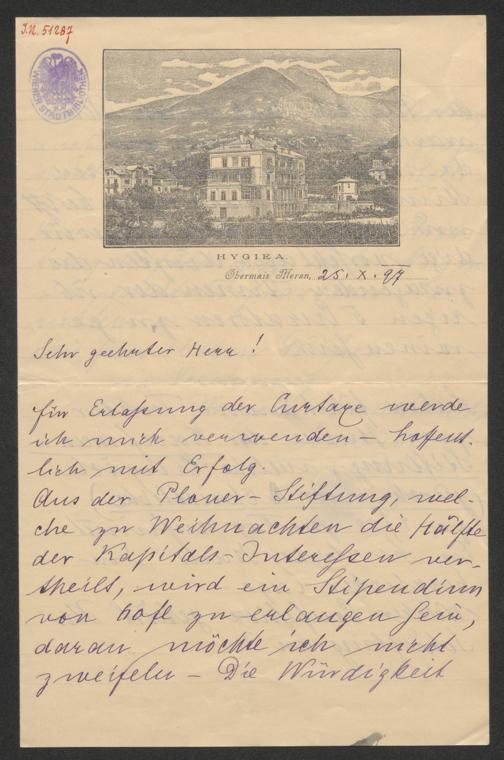 I.N. 51287
WIENER STADTBIBLIOTHEK
HYGIEA.
Obermais Meran, 25. X. 97
Sehr geehrter Herr!
für Erlaßung der Curtaxe werde
ich mich verwenden – hoffent-
lich mit Erfolg.
Aus der Ploner-Stiftung, wel-
che zu Weihnachten die Hälfte
der Kapitals-Interessen ver-
theilt, wird ein Stipendium
von 60 fl zu erlangen sein,
daran möchte ich nicht
zweifeln – Die Würdigkeit